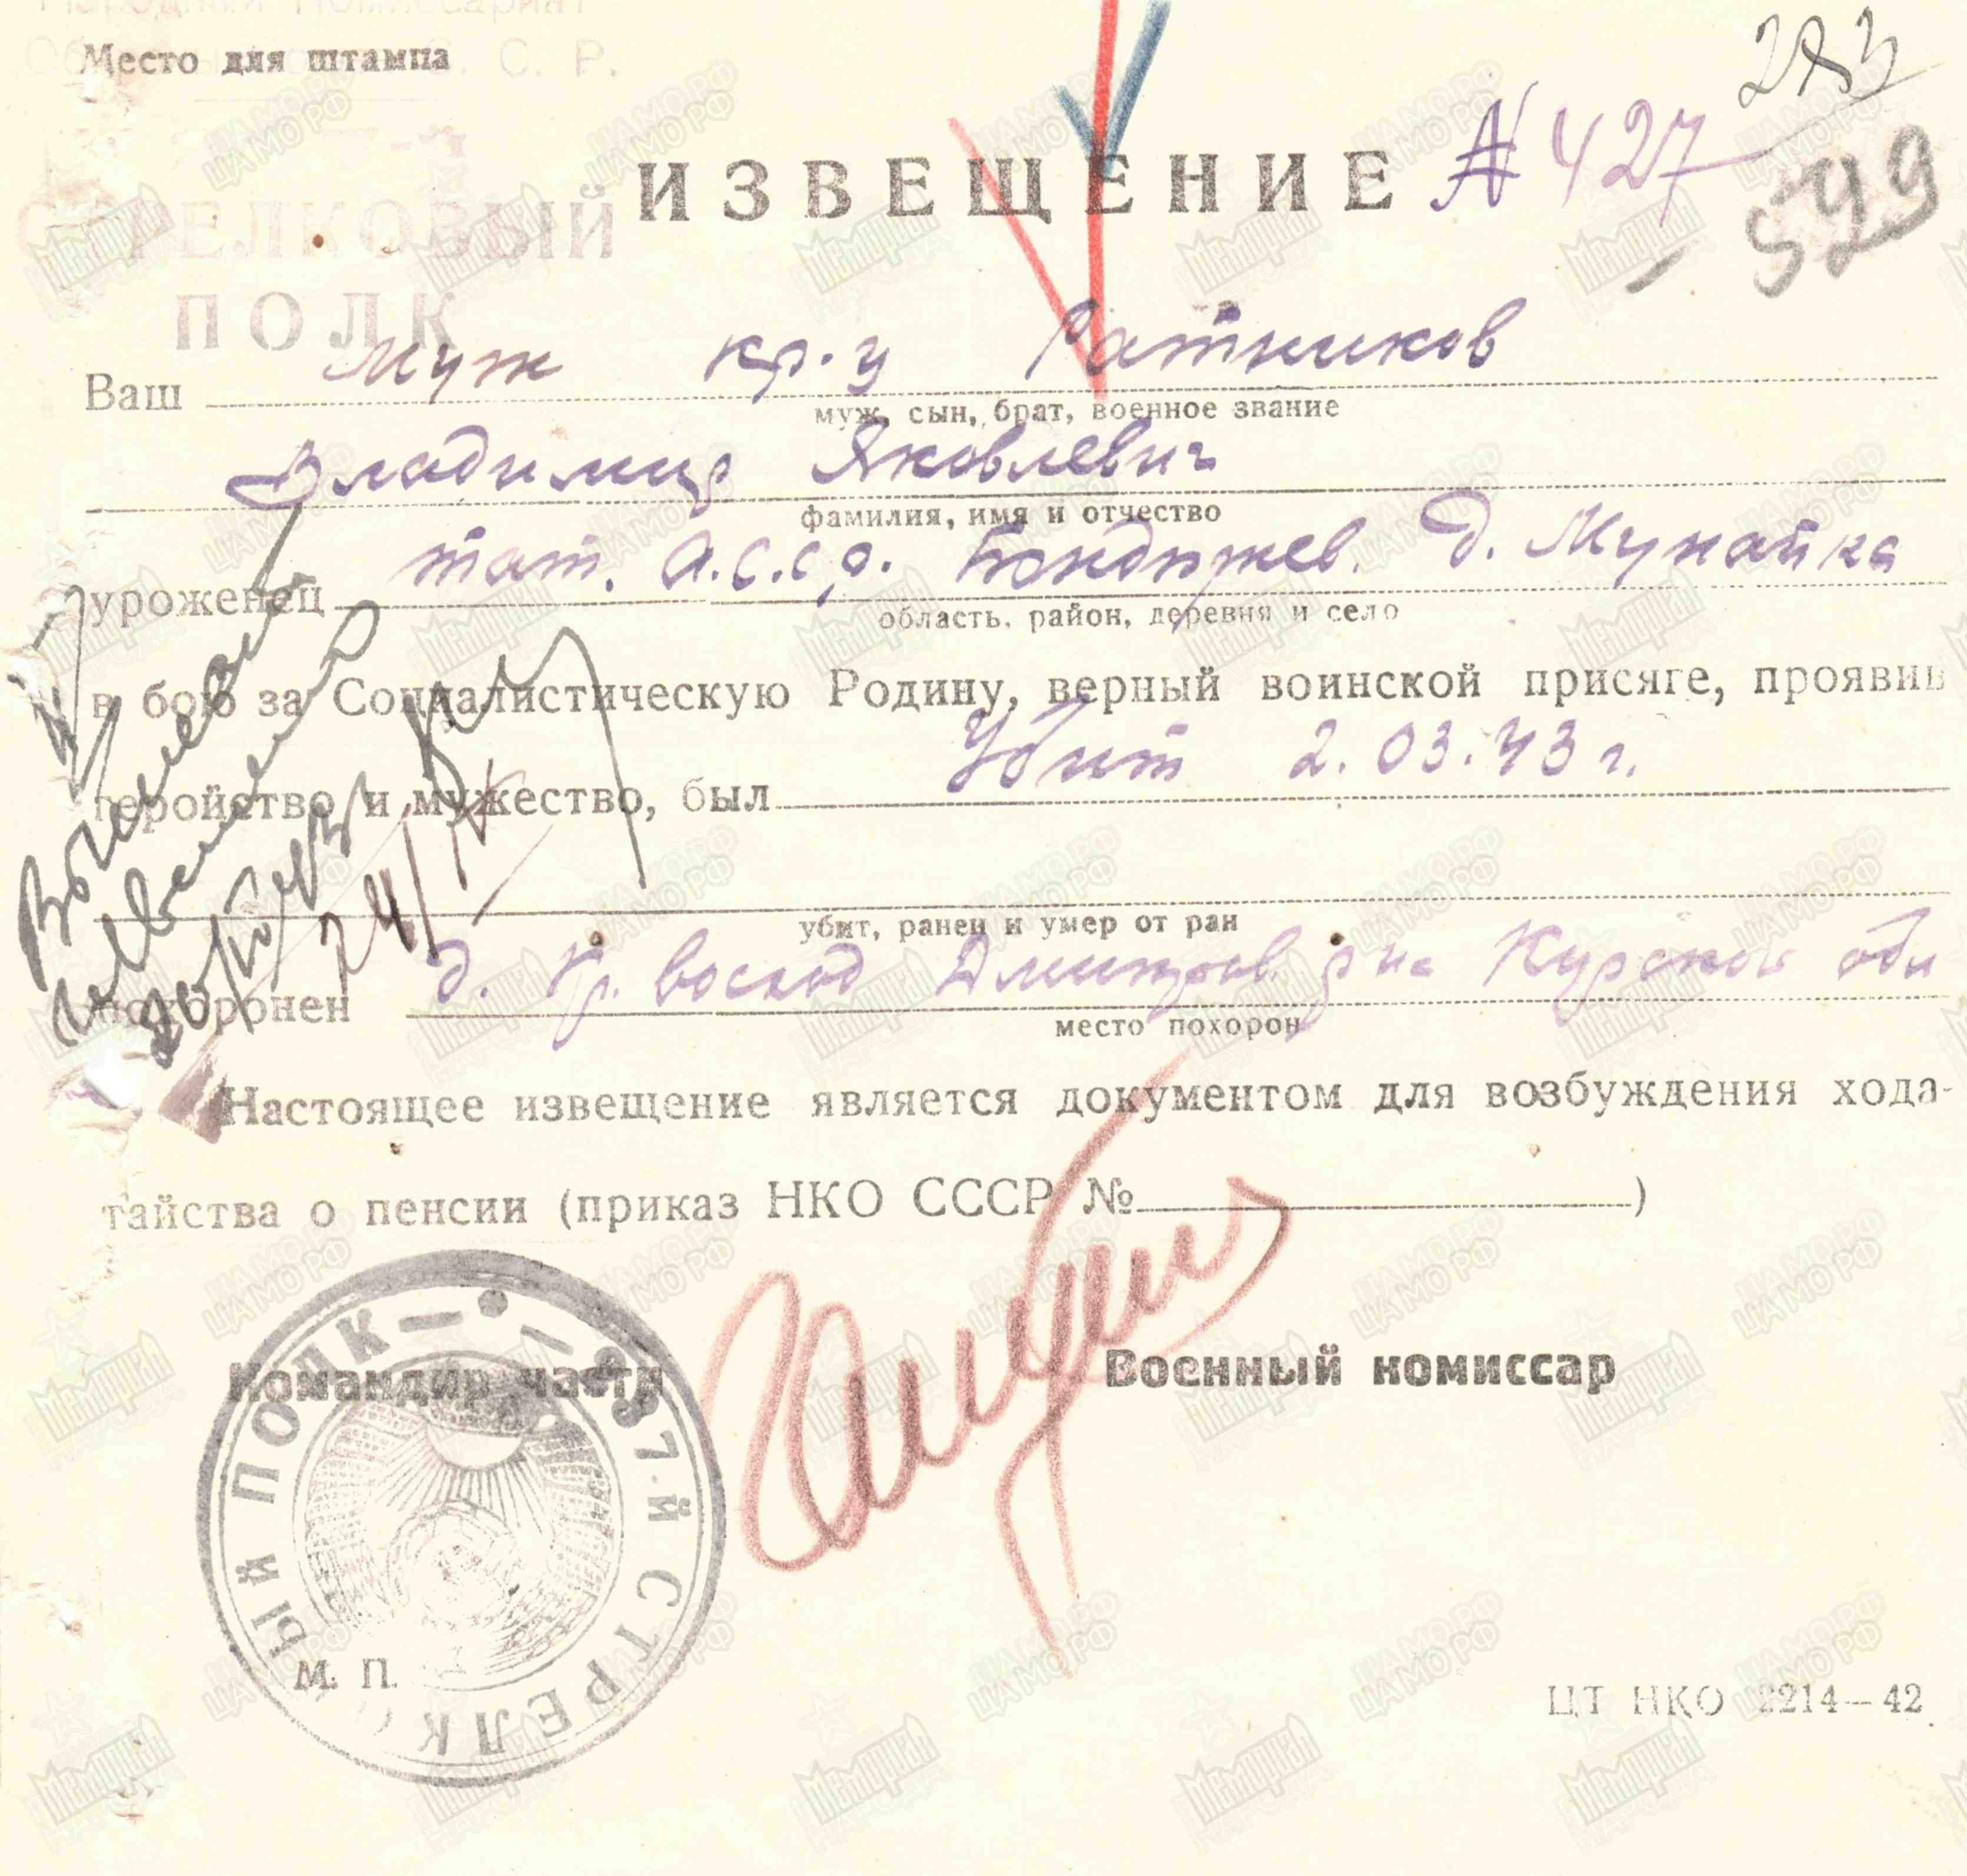 Народный Комиссариат
Место для штампа
С. С. Р.
СТРЕЛКОВЫЙ
ПОЛК
283
ИЗВЕЩЕНИЕ № 427
599
Ваш муж кр-ц Ратников
муж, сын, брат, военное звание
Владимир Яковлевич
фамилия, имя и отчество
уроженец тат. А.С.С.Р. Бондюжев. д. Мунайка
область, район, деревня и село
в бою за Социалистическую Родину, верный воинской присяге, проявив
геройство и мужество, был Убит 2.03.43 г.
убит, ранен и умер от ран
похоронен д. Кр. восход Дмитров. р-на Курской обл
место похорон
извещение
24/IV
Настоящее извещение является документом для возбуждения хода-
тайства о пенсии (приказ НКО СССР № )
Командир части
Военный комиссар
7-Й СТРЕЛКОВЫЙ ПОЛК
М. П.
ЦТ НКО 2214—42